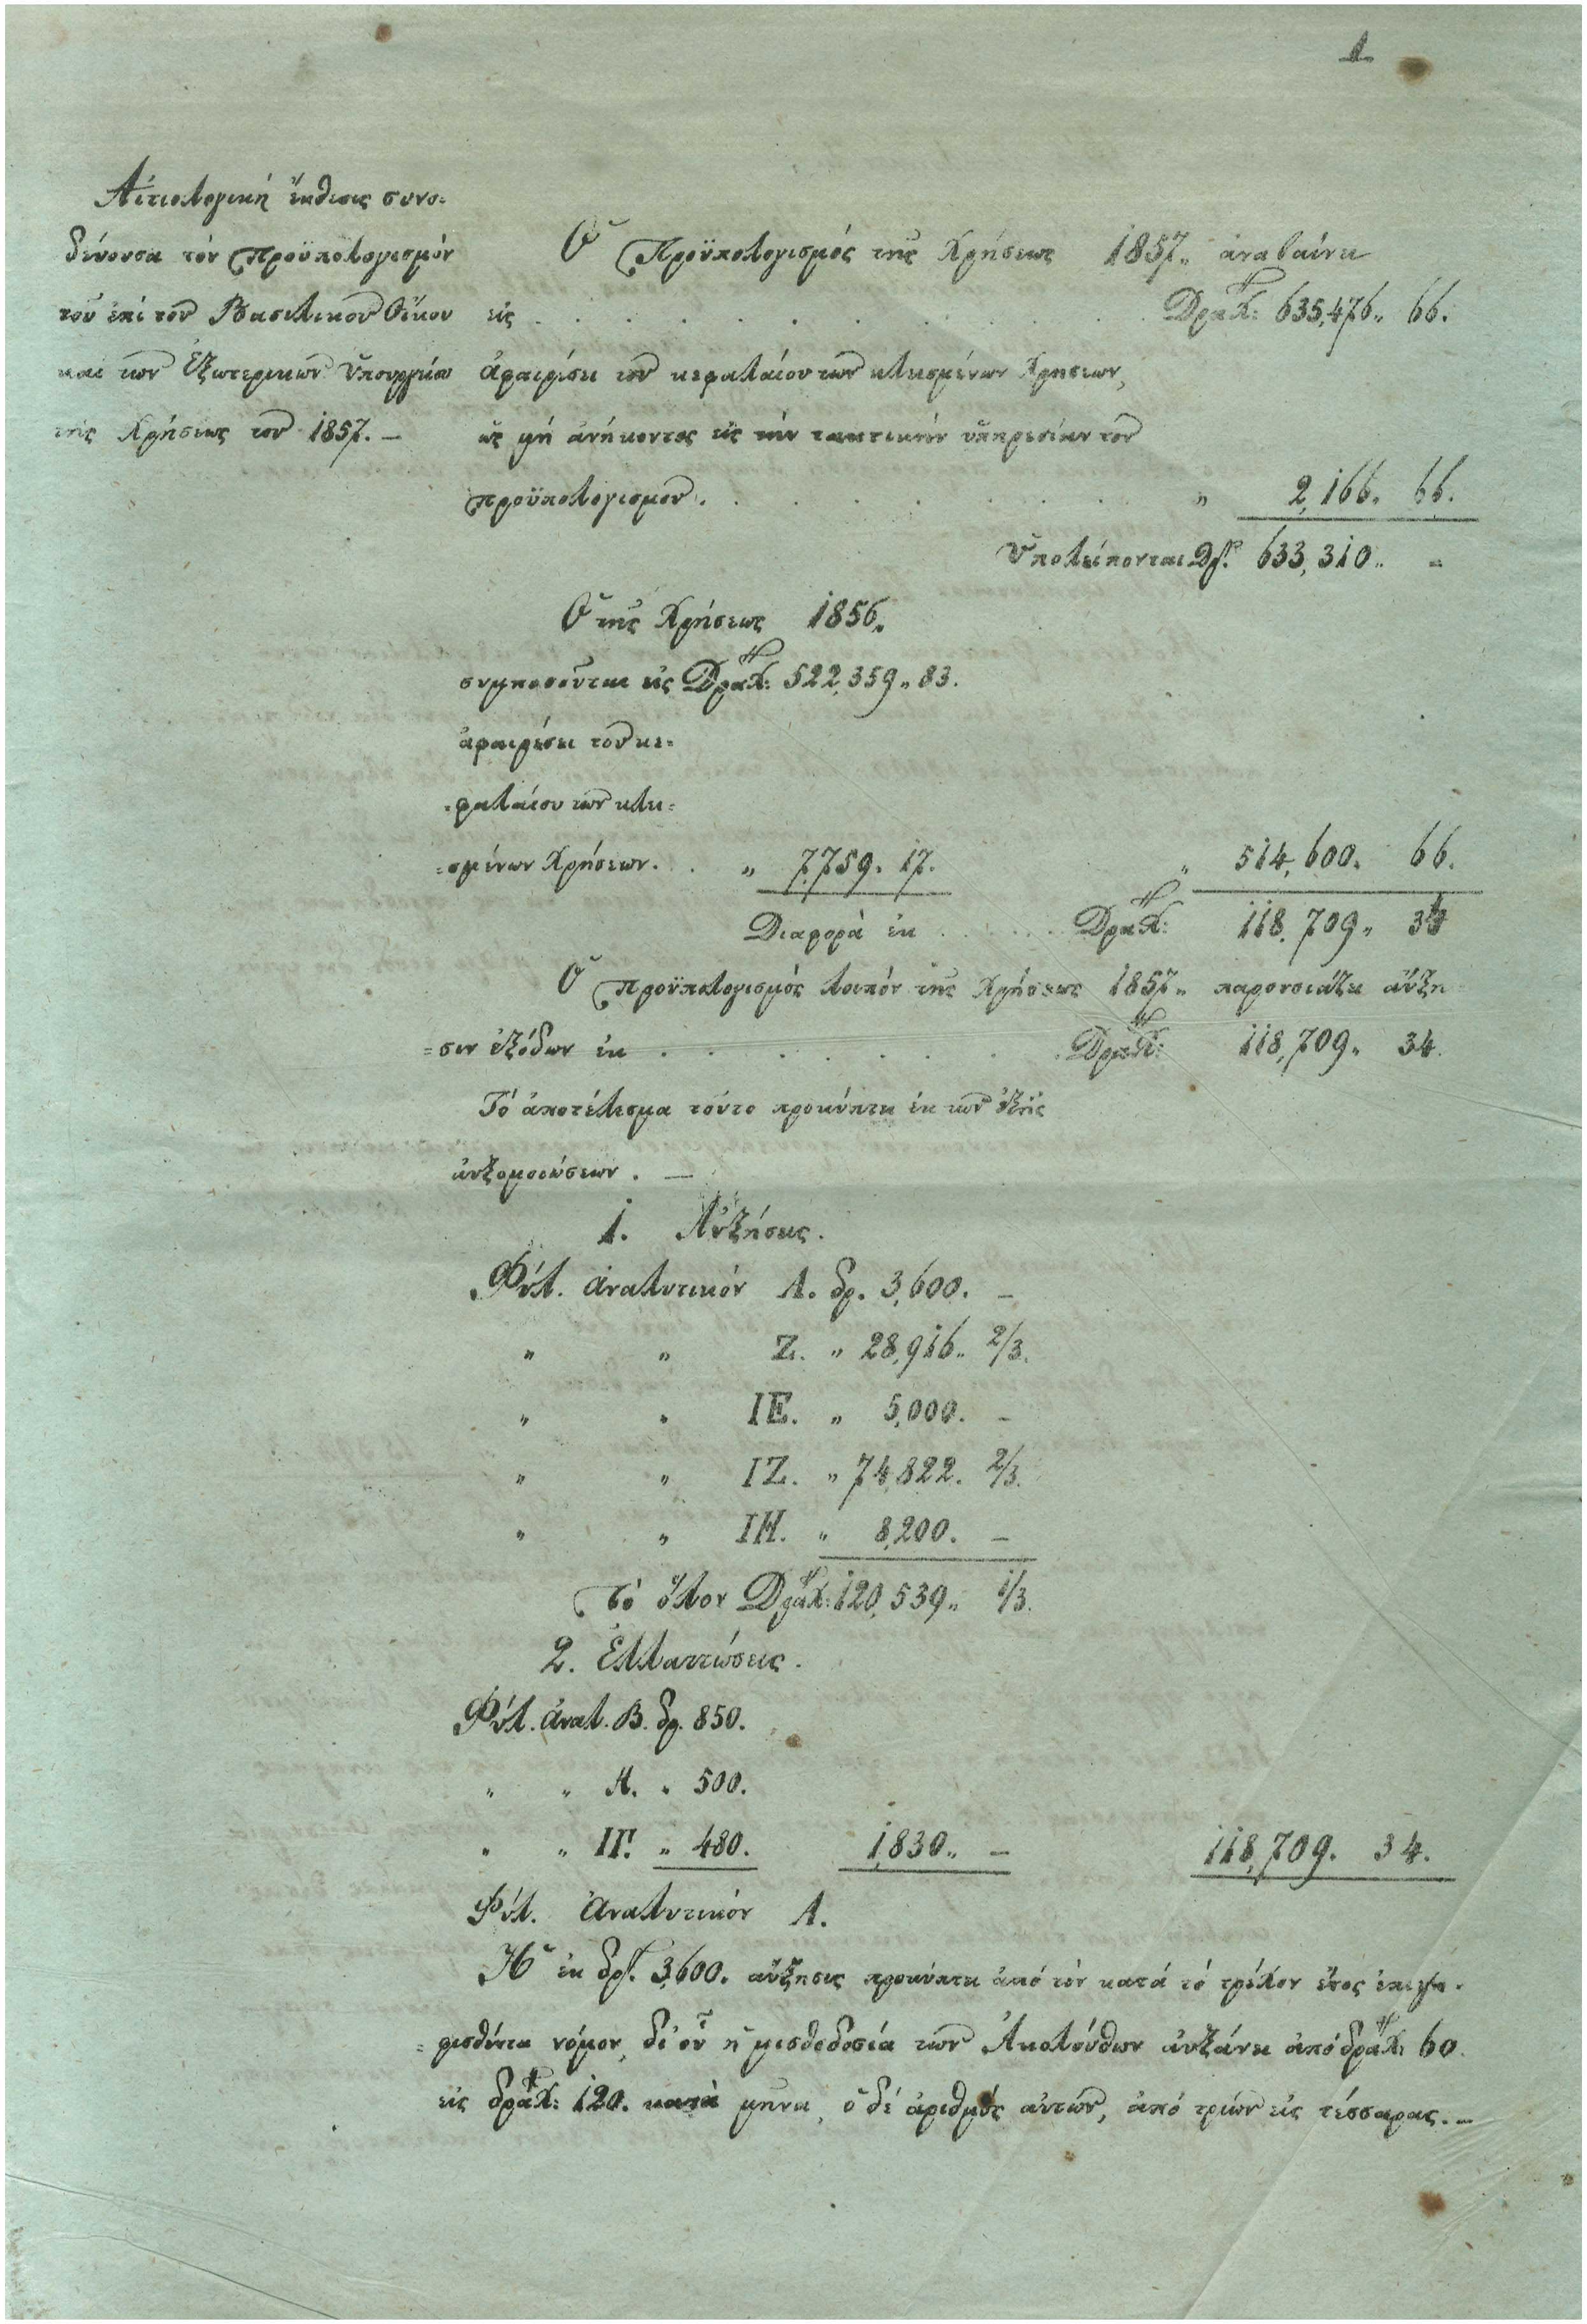 1
Αἰτιολογική ἔκθεσις συνο=
δεύουσα τόν Προϋπολογισμόν
τοῦ ἐπί τοῦ Βασιλικοῦ Οἴκου
καί τῶν Ἐξωτερικῶν Ὑπουργείου
τῆς Χρήσεως τοῦ 1857. –
Ὁ Προϋπολογισμός τῆς Χρήσεως 1857„ ἀναβαίνει
εἰς . . . . . . . . . . . Δραχ: 635,476„ 66.
ἀφαιρέσει τοῦ κεφαλαίου τῶν κλεισμένων Χρήσεων,
ὡς μή ἀνήκοντος εἰς τήν τακτικήν ὑπηρεσίαν τοῦ
προϋπολογισμοῦ . . . . . . „ 2,166„ 66.
Ὑπολείπονται Δρ. 633,310„ =
Ὁ τῆς Χρήσεως 1856„
συμποσοῦται εἰς Δραχ: 522,359„ 83.
ἀφαιρέσει τοῦ κε=
=φαλαίου τῶν κλει=
=σμένων Χρήσεων . . „ 7,759„ 17. „ 514,600„ 66.
Διαφορά ἐκ . . . . . . Δραχ: 118,709„ 34
Ὁ προϋπολογισμός λοιπόν τῆς Χρήσεως 1857„ παρουσιάζει αὔξη
=σιν ἐξόδων ἐκ . . . . . . . . Δραχ: 118,709„ 34.
Τό ἀποτέλεσμα τοῦτο προκύπτει ἐκ τῶν ἑξῆς
αὐξομοιώσεων . –
1. Αὐξήσεις.
Φύλ. ἀναλυτικόν Α. δρ. 3,600. –
„ „ Ζ. „ 28,916„ 2/3.
„ „ ΙΕ. „ 5,000. –
„ „ ΙΖ. „ 74,822. 2/3.
„ „ ΙΗ. „ 8,200. –
Τό ὅλον Δραχ: 120,539„ 1/3.
2. Ἐλλαττώσεις.
Φύλ. ἀναλ. Β. δρ. 850.
„ „ Η. „ 500.
„ „ ΙΓ. „ 480. 1,830„ – 118,709. 34.
Φύλ. Ἀναλυτικόν Α.
Ἡ ἐκ δρ. 3,600. αὔξησις προκύπτει ἀπό τόν κατά τό τρέχον ἔτος ἐπεψη=
=φισθέντα νόμον, δι' οὗ ἡ μισθοδοσία τῶν Ἀκολούθων αὐξάνει ἀπό δραχ: 60
εἰς δραχ: 120. κατά μῆνα, ὁ δέ ἀριθμός αὐτῶν, ἀπό τριῶν εἰς τέσσαρας. –